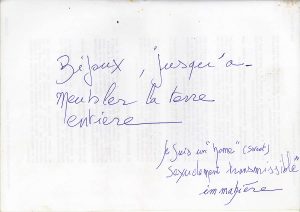 Bijoux, "jusqu'a-
Meubler la terre
entière
Je suis un "home" (sweet)
sexuellement transmissible"
immagière